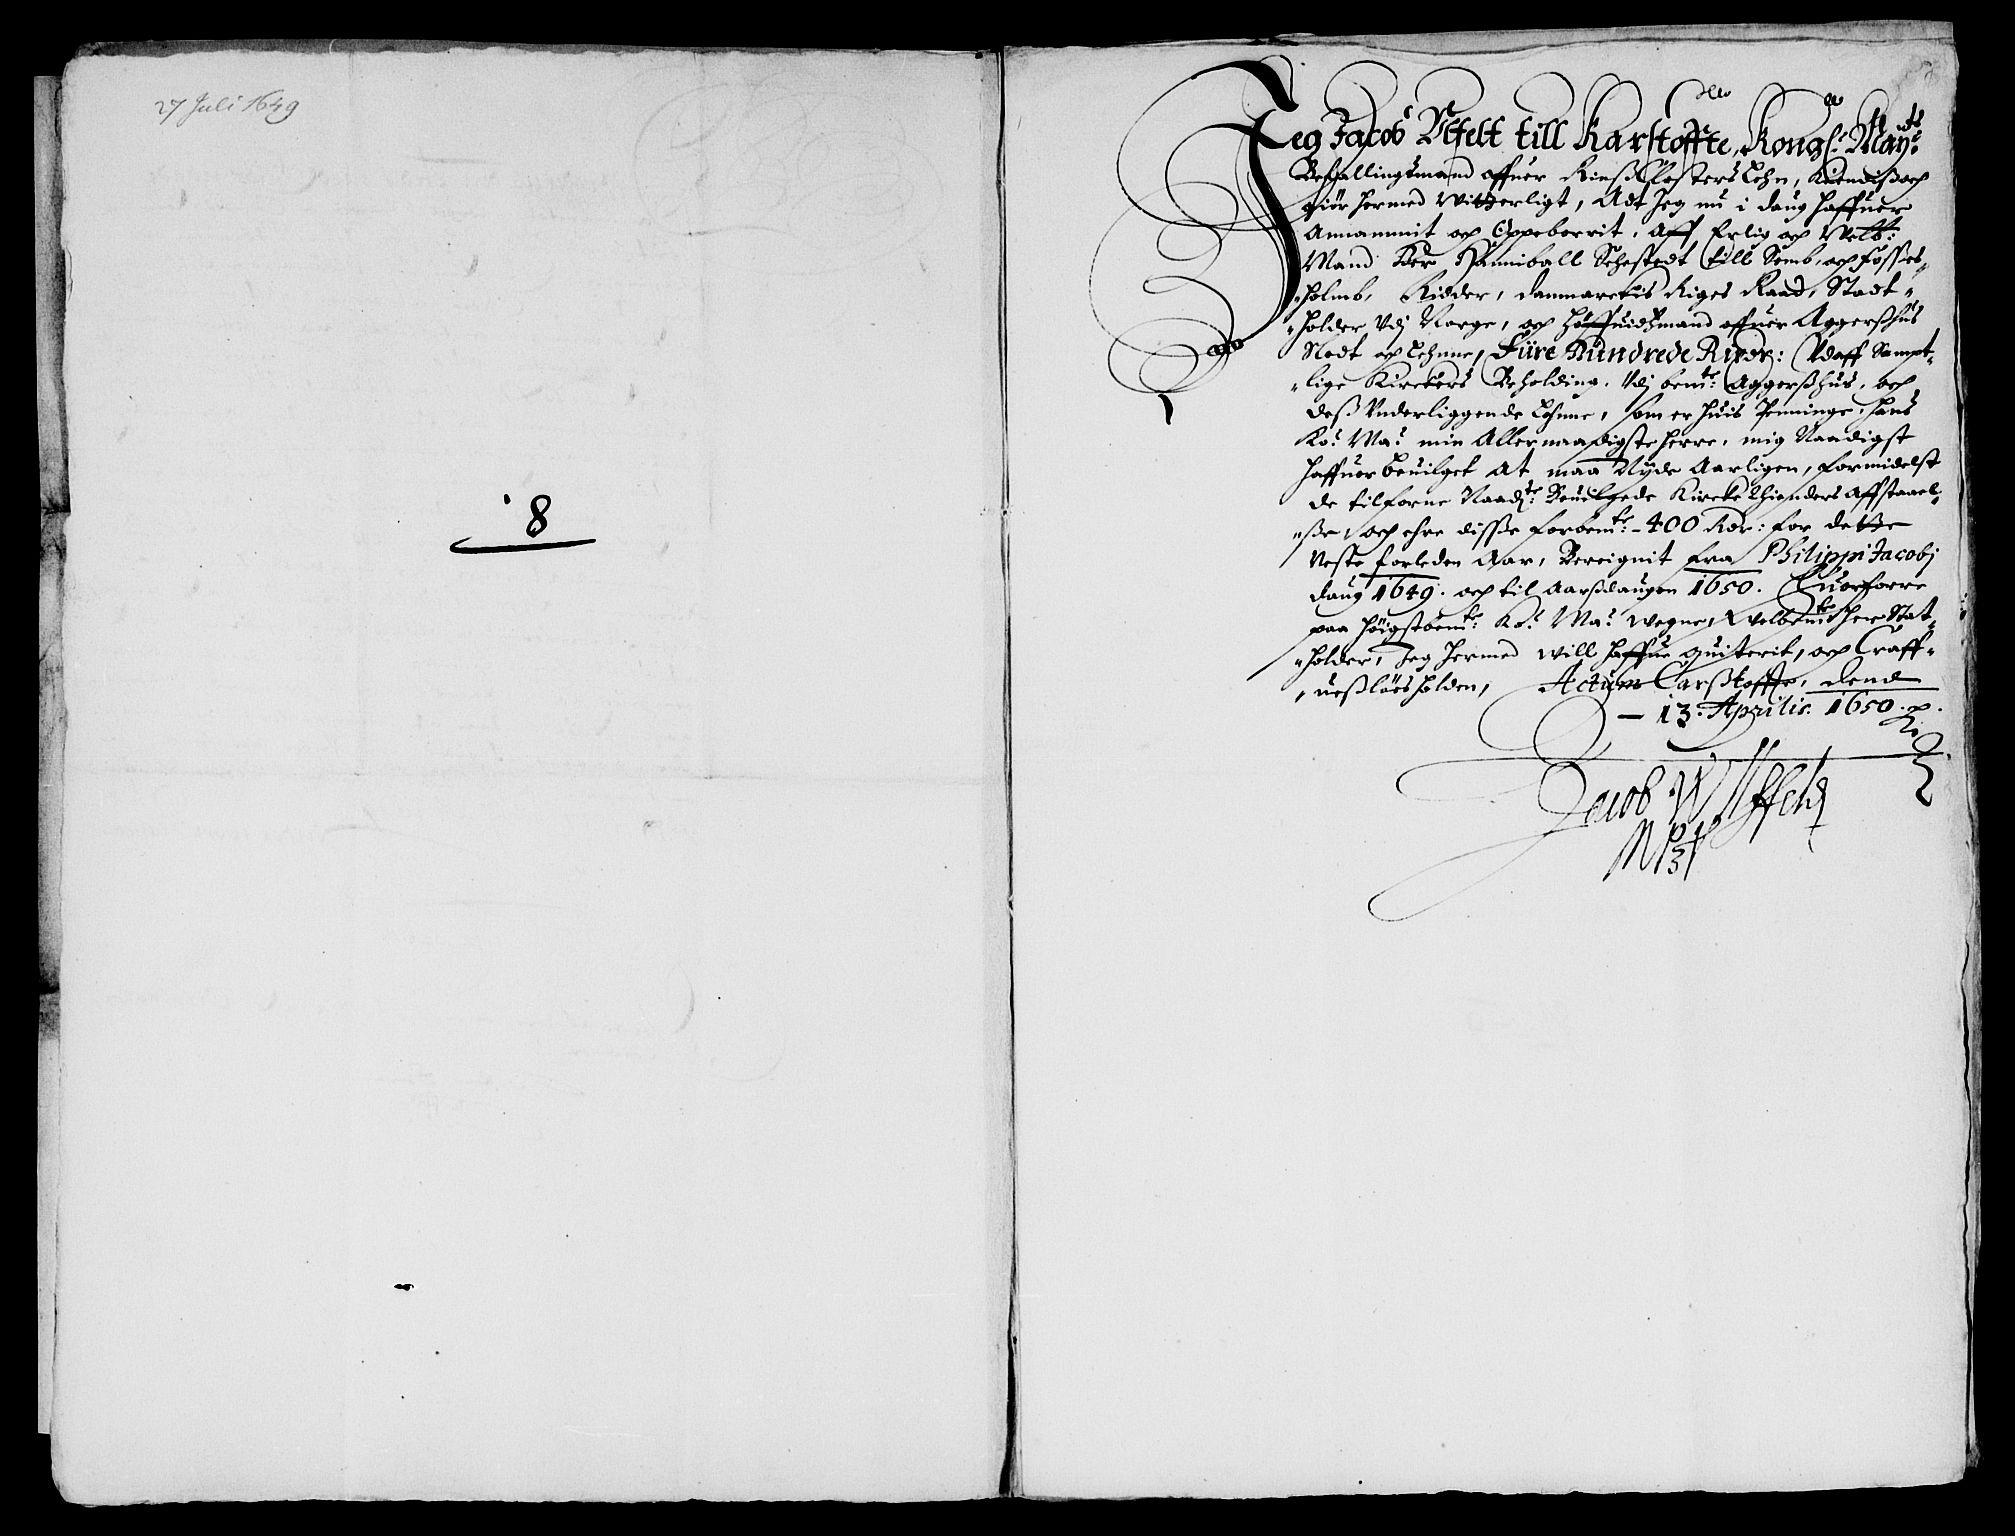 27 Juli 1649
8
Jeg Jacob Vlfelt till Karstoffte, Kongl: May:ts
Befallingsmand offuer Rinß Closters Lehn, Kiendis och
giör hermed Witterligt, Adt Jeg nu i daug haffuer
Annammit och Oppeborrit, aff Erlig och Welb:
Mand Her Hanniball Sehestedt till Semb, och Fosses-
-holmb, Ridder, Danmarckis Riges Raad, Stadt-
-holder Vdj Norge, och Höffuidtzmand offuer Aggershuus
Slodt och Lehnne, Füre Hundrede Rixdr: Vdaff Sampt-
-lige Kirckers Beholding, Vdj bem:te Aggerßhus, och
deß Vnderliggende Lehnne, som er huis Penninge, Hans
Ko: Ma: min Allernaadigste Herre, mig Naadigst
haffuer beuilget At maa Nyde Aarligen, formidelst
de tilforne Naad:te Beuilgede Kircke Thienders Affstaael-
-ße, och ehre disse forbem:te - 400 Rdr: for dette
Neste forleden Aar, Bereignit fra Philippi Jacobj
daug 1649. och til Aarßdaugen 1650. Huorforre
paa höigstbem:te Ko: Ma: Wegne, Welbem:te Her Stat-
-holder, Jeg hermed will haffue quiterit, och Kraff-
-uesløes holden, Actum Carßtoffte, dend
- 13. Aprilis. 1650.
Jacob W Ulffeldt
Mpp